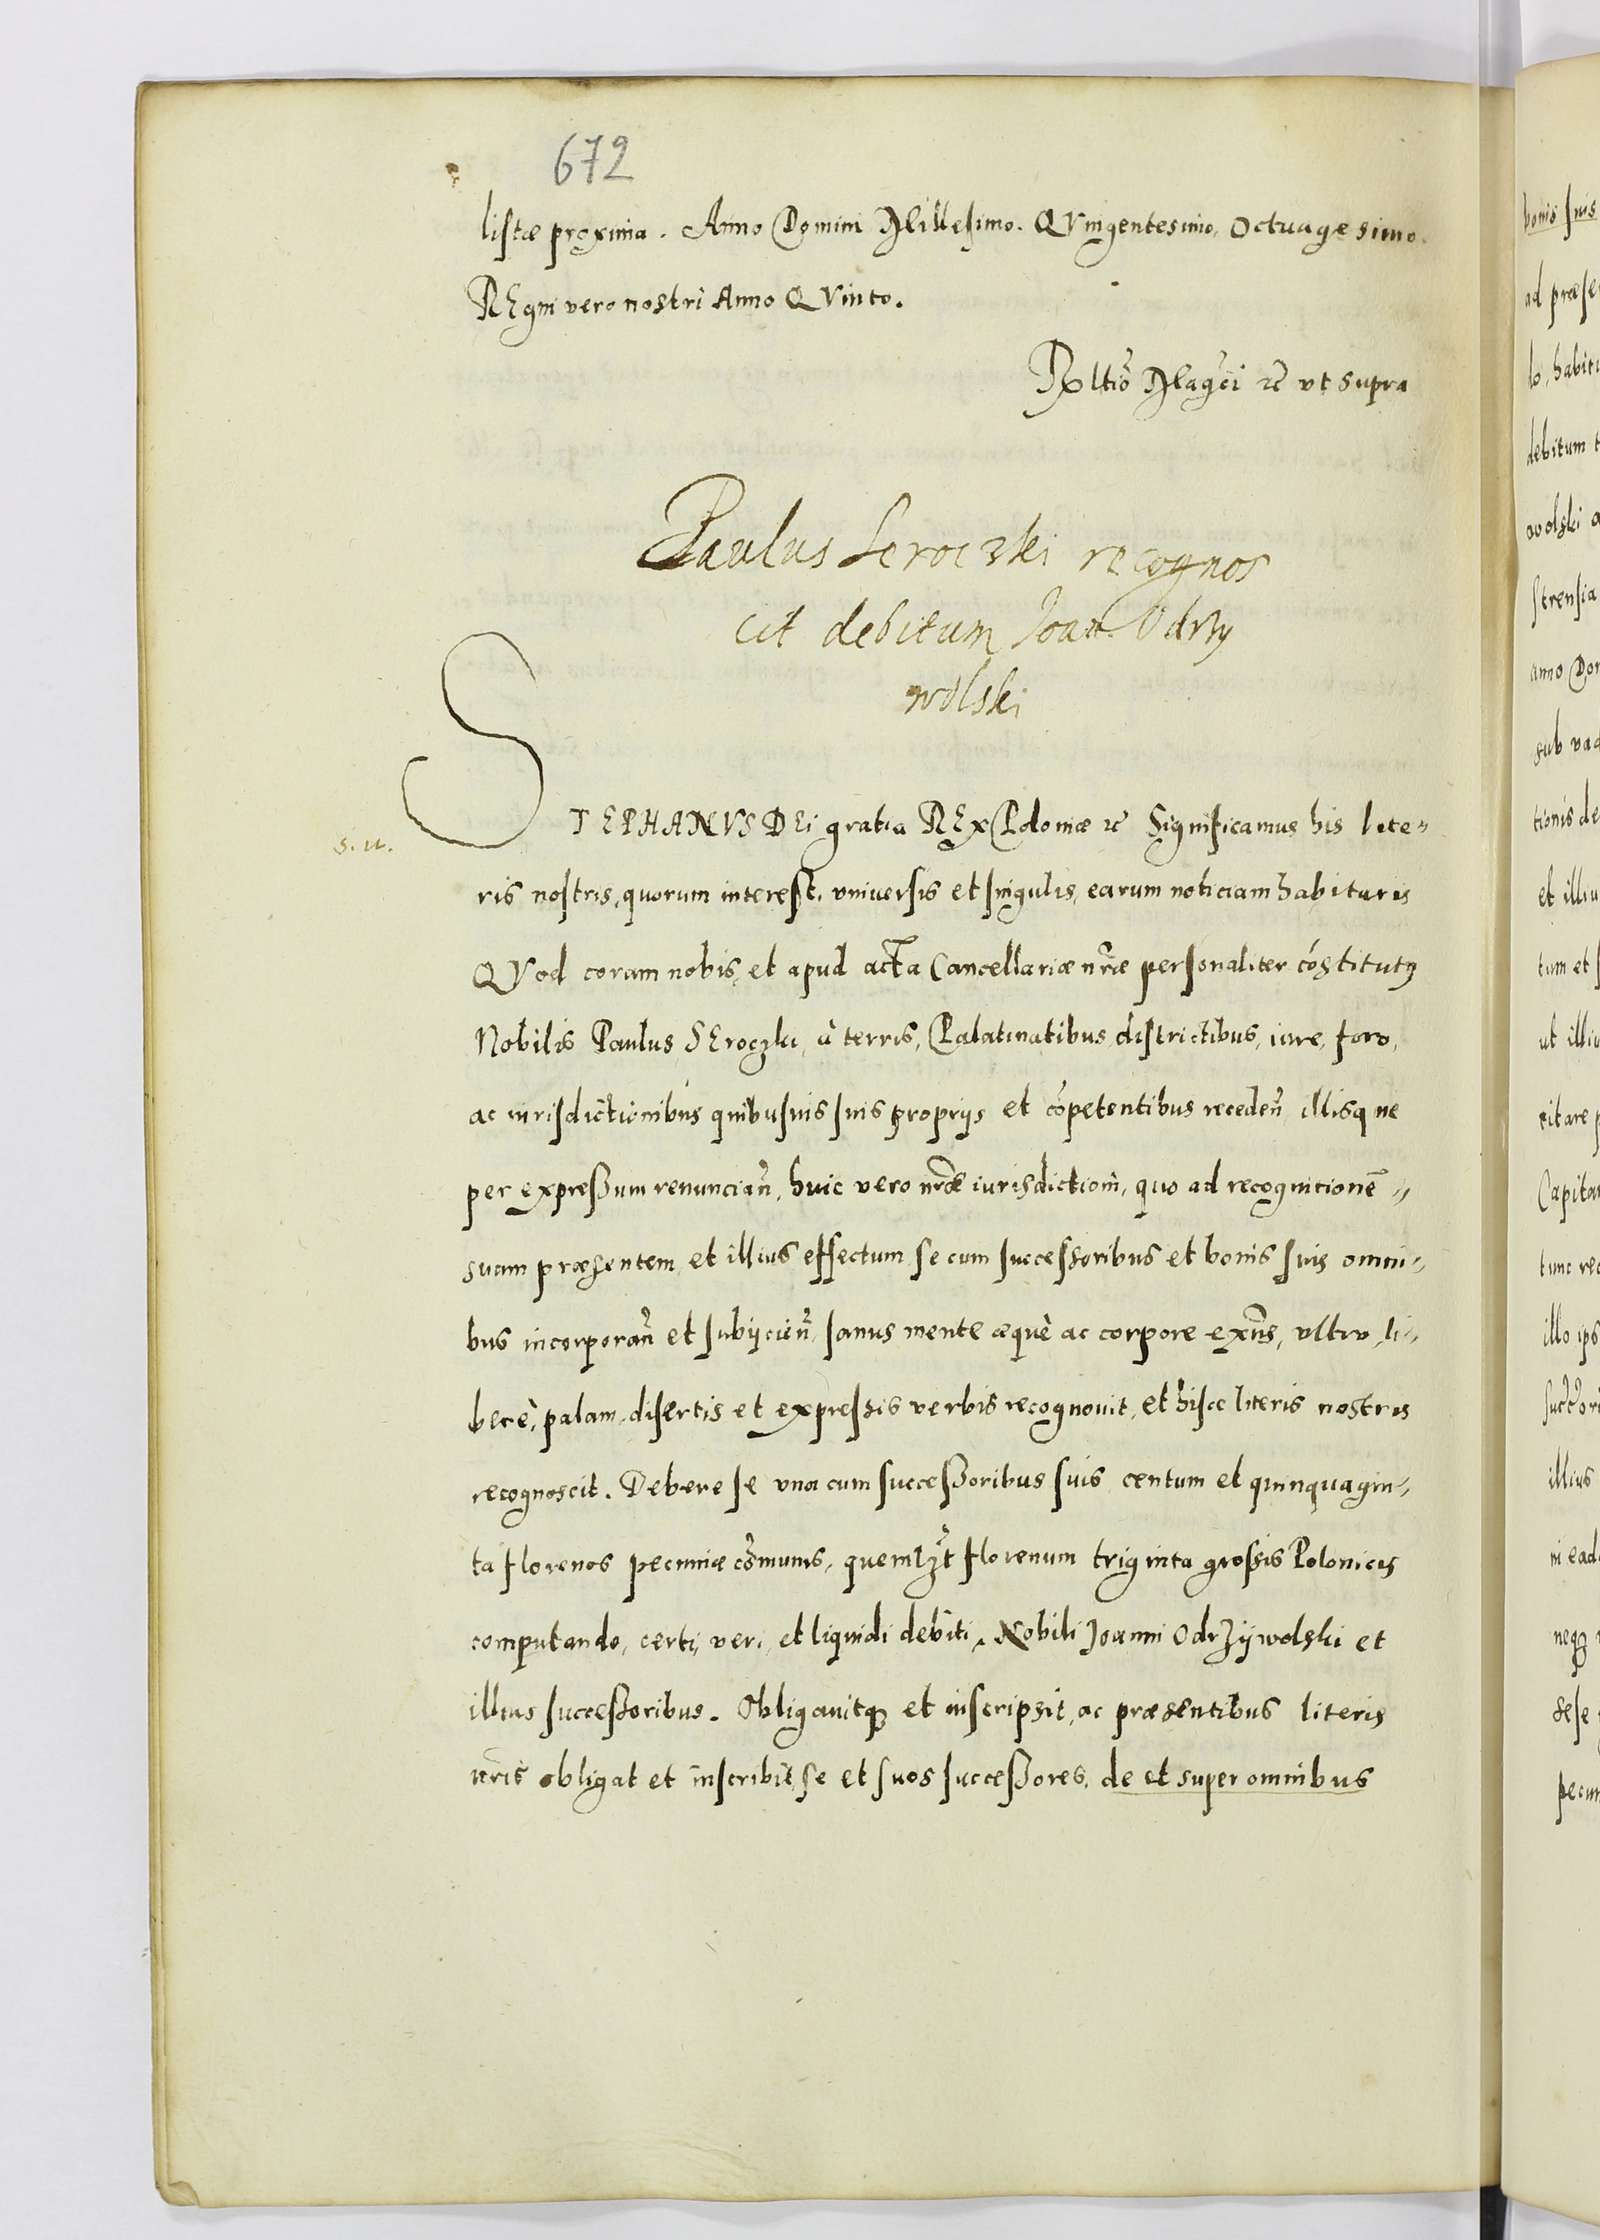 672
listæ proxima. Anno Domini Millesimo. QVingentesimo, Octuagesimo.
REgni vero nostri Anno QVinto.
Rltiõ Magci rc vt supra
Paulus Seroczki recognos
cit debitum Joan. Odrzy
wolski
S. u.
STEPHANVS DEi gratia REx Poloniæ rc Significamus his lite„
ris nostris, quorum interest, vniuersis et singulis, earum noticiam habituris
QVod coram nobis, et apud acta Cancellariæ nr̃æ personaliter cõstitutꝰ
Nobilis Paulus SEroczki, à terris, Palatinatibus, districtibus, iure, foro,
ac iurisdictionibus quibusuis suis proprijs et cõpetentibus receden̄ illisque
per expreßum renuncian̄, huic vero nr̃æ iurisdictioni, quo ad recognicionẽ „
suam præsentem et illius effectum se cum successoribus et bonis suis omni„
bus incorporan̄ et subijcien̄, sanus mente æquè ac corpore exñs, vltro, li„
berè, palam, disertis et expressis verbis recognouit, et hisce literis nostris
recognoscit. Debere se vna cum succeßoribus suis centum et quinquagin„
ta florenos pecuniæ cõmunis, quemlꝫt florenum triginta grossis Polonicis
computando, certi, veri, et liquidi debiti, Nobili Joanni Odrzywolski et
illius succeßoribus. Obligauitqꝫ et inscripsit, ac præsentibus literis
nr̃is obligat et inscribit, se et suos succeßores, de et super omnibus
bonis suis
ad præse
lo, habitu
debitum
wolski a
strensia
anno Do
sub va
tionis de
et illiu
tum et
ut illiu
citare
Capita
tunc re
illo ips
illius
in ead
neqꝫ
sese
pecun